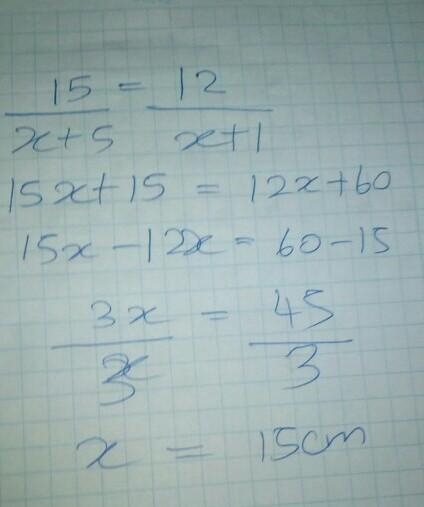 15 = 12
x+5 x+1
15x+15 = 12x+60
15x-12x = 60-15
3x = 45
3 3
x = 15cm